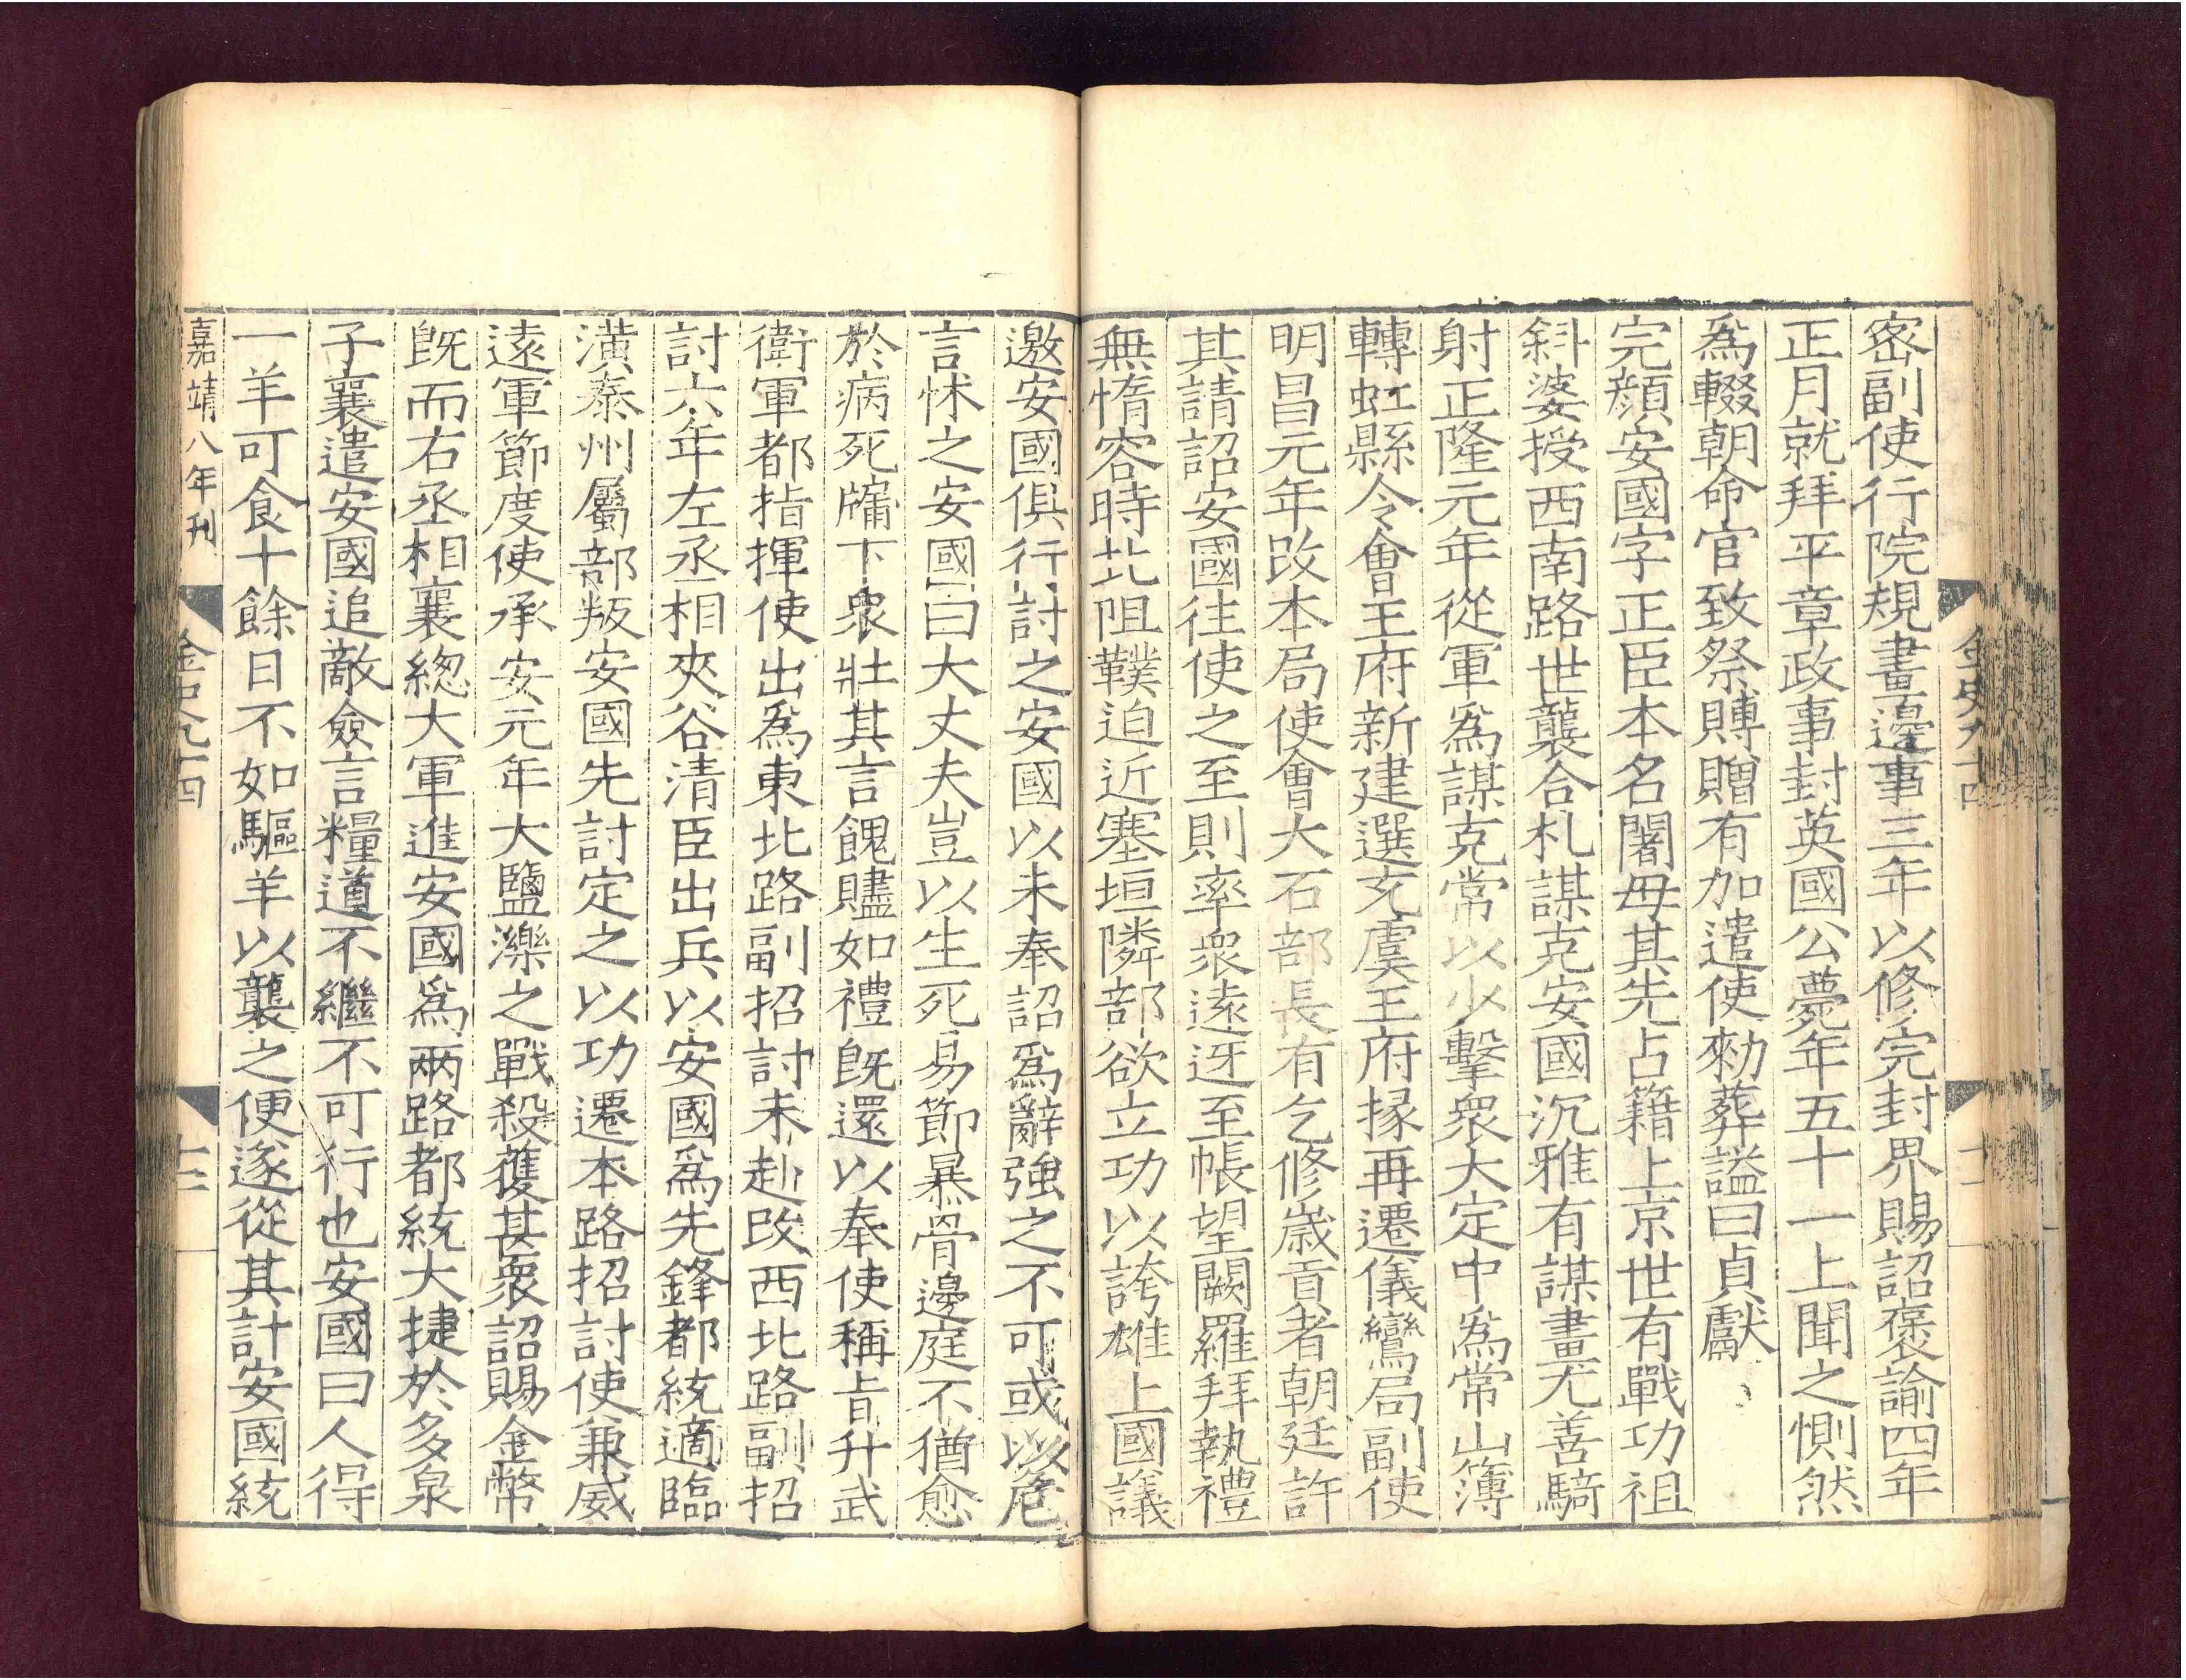 密副使行院規畫邊事三年以修完封界賜詔褒諭四年
正月就拜平章政事封英國公薨年五十一上聞之惻然
爲輟朝命官致祭賻贈有加遣使勑葬謚曰貞獻
完顔安國字正臣本名闍母其先占籍上京世有戰功祖
斜婆授西南路世襲合札謀克安國沉雅有謀畫尤善騎
射正隆元年從軍爲謀克常以少擊衆大定中爲常山簿
轉虹縣令會王府新建選充虞王府掾再遷儀鸞局副使
明昌元年改本局使會大石部長有乞修歲貢者朝廷許
其請詔安國往使之至則率衆遠迓至帳望闕羅拜執禮
無惰容時北阻䪁迫近塞垣隣部欲立功以誇雄上國議
邀安國俱行討之安國以未奉詔爲辭強之不可或以危
言怵之安國曰大丈夫豈以生死易節暴骨邊庭不猶愈
於病死牖下衆壯其言餽贐如禮旣還以奉使稱旨升武
衛軍都指揮使出爲東北路副招討未赴改西北路副招
討六年左丞相夾谷清臣出兵以安國爲先鋒都統適臨
潢泰州屬部叛安國先討定之以功遷本路招討使兼威
遠軍節度使承安元年大鹽濼之戰殺獲甚衆詔賜金幣
旣而右丞相襄緫大軍進安國爲兩路都統大捷於多泉
子襄遣安國追敵僉言糧道不繼不可行也安國曰人得
一羊可食十餘日不如驅羊以襲之便遂從其計安國統
嘉靖八年刊
金史九十四
十二